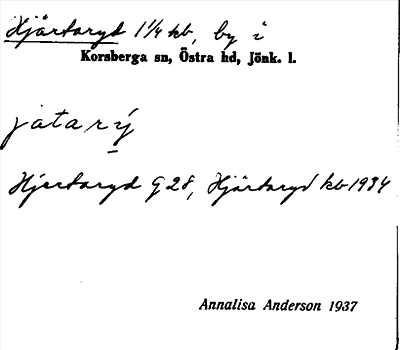 Hjärtaryd 1 1/4 kb, by i
Korsberga sn, Östra hd, Jönk. l.
jatarý
Hjertaryd G 28, Hjärtaryd kb 1934
Annalisa Anderson 1937